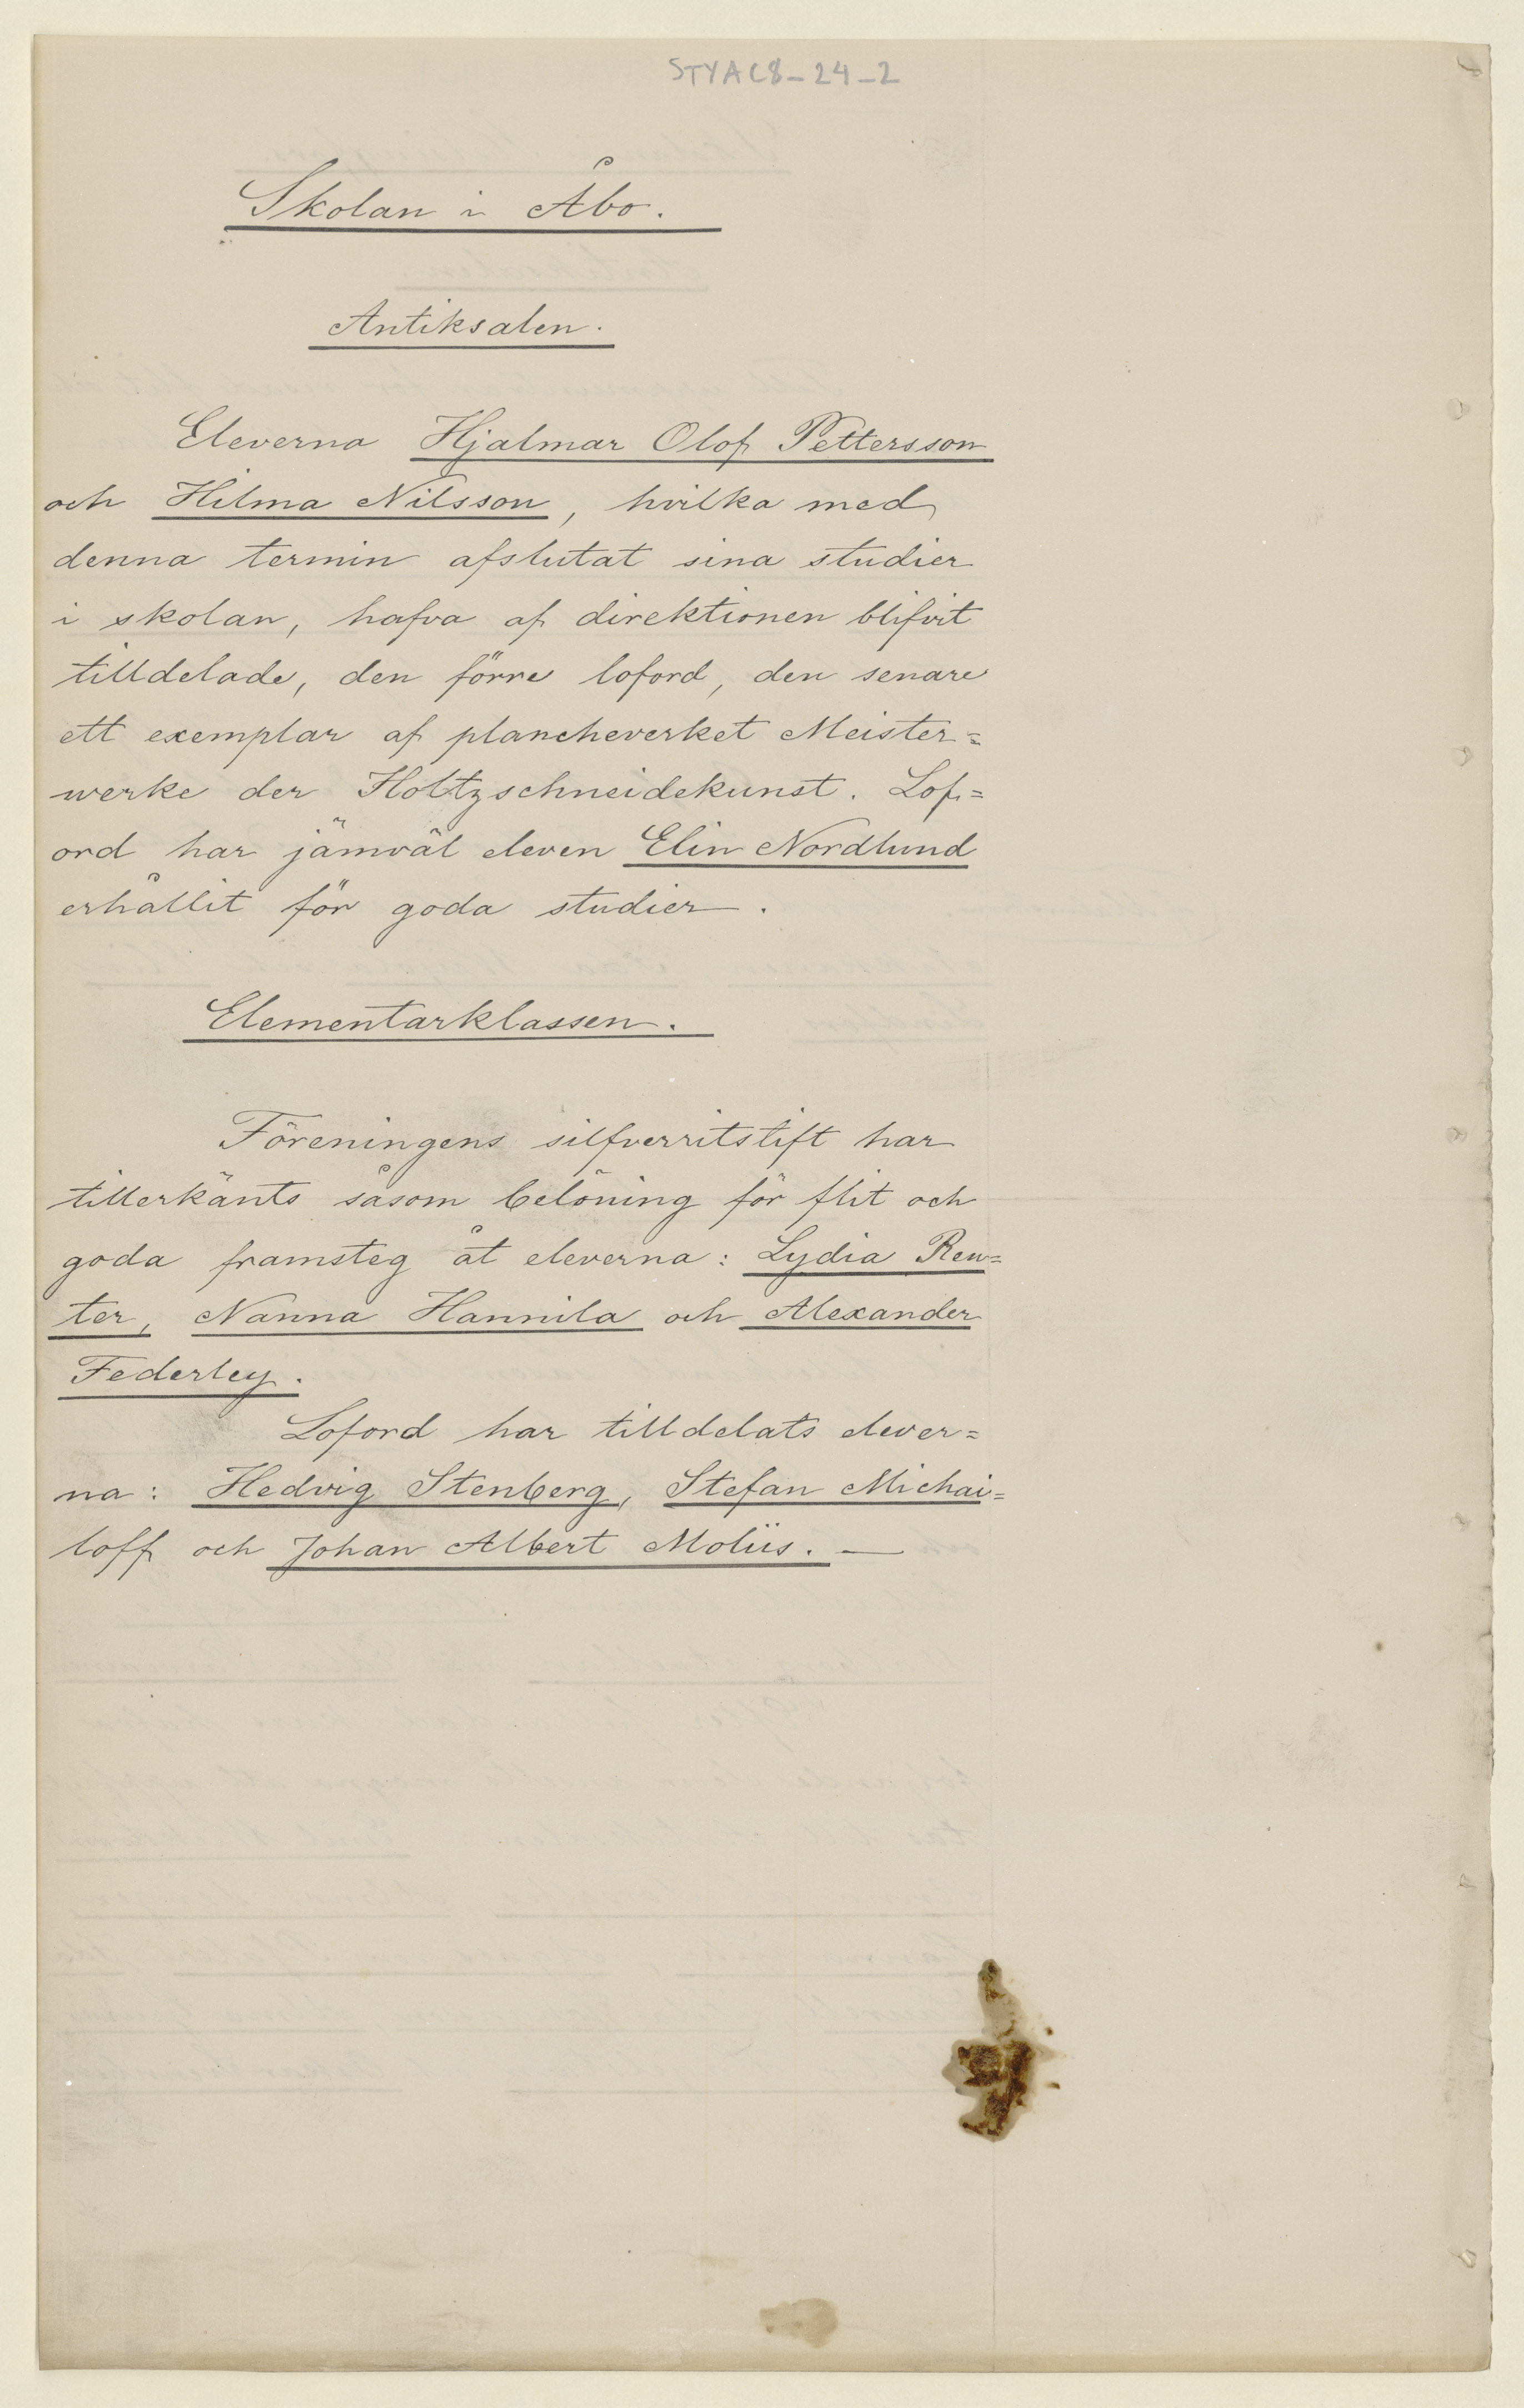 STYAC8-24-2
Skolan i Åbo.
Antiksalen.
Eleverna Hjalmar Olof Pettersson
och Hilma Nilsson, hvilka med
denna termin afslutat sina studier
i skolan, hafva af direktionen blifvit
tilldelade, den förre loford, den senare
ett exemplar af plancheverket Meister=
werke der Holtzschneidekunst. Lof=
ord har jämväl eleven Elin Nordlund
erhållit för goda studier.
Elementarklassen.
Föreningens silfverritstift har
tillerkänts såsom belöning för flit och
goda framsteg åt eleverna: Lydia Reu=
ter, Nanna Hannila och Alexander
Federley.
Loford har tilldelats elever=
na: Hedvig Stenberg, Stefan Michai=
loff och Johan Albert Moliis. —